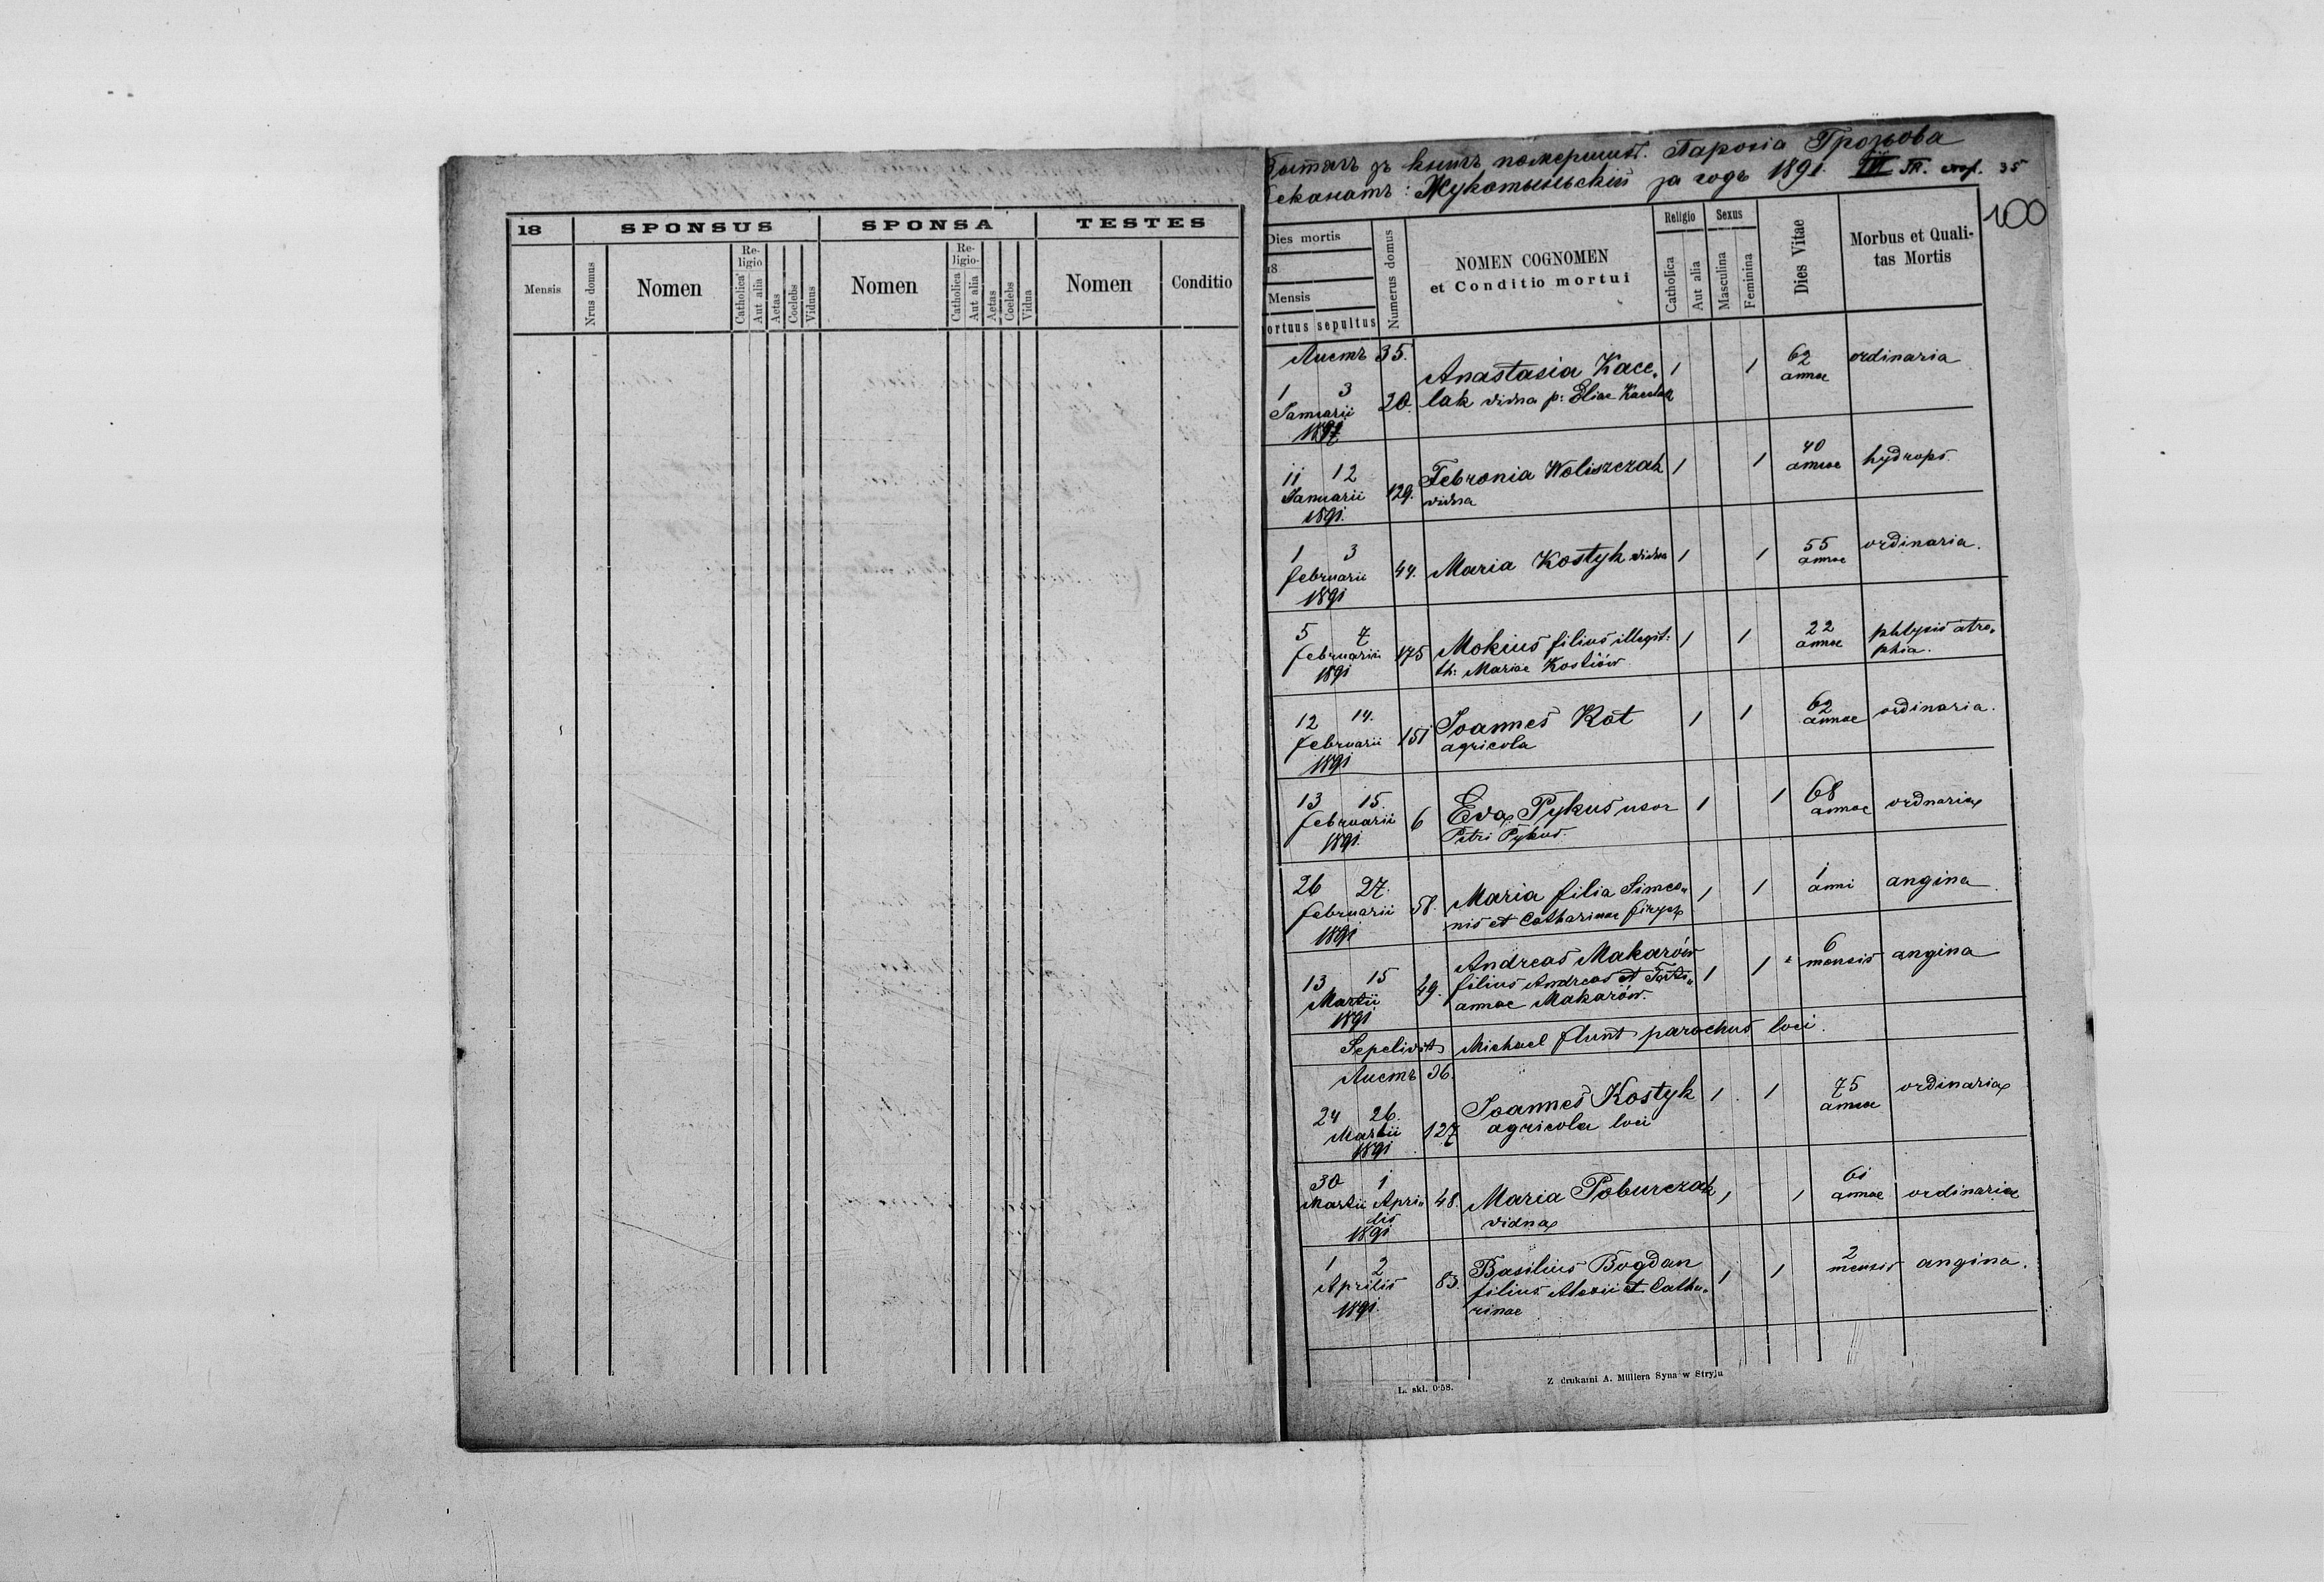 18 SPONSUS SPONSA TESTES
Mensis Nrus domus Nomen Re-ligio Catholica Aut alia Aetas Coelebs Viduus Nomen Re-ligio- Catholica Aut alia Aetas Coelebs Vidua Nomen Conditio
книгъ помершихъ. Парохія Грозьова
за годъ 1891. III стр. 35
100
Dies mortis
18
Mensis
ortuus sepultus
Numerus domus
NOMEN COGNOMEN
et Conditio mortui
Religio
Catholica Aut alia
Sexus
Masculina Feminina
Dies Vitae
Morbus et Quali-
tas Mortis
Листъ 35.
1 3 Anastasia Kace„ 1 1 62 ordinaria
Januarii 20. lak vidua p: Eliae Kacelak annae
1891
11 12 Febronia Woliszczak 1 1 40 hydrops.
Januarii 129. vidua annae
1891.
1 3 Maria Kostyk vidua 1 1 55 ordinaria.
februarii 44. annae
1891
5 7 Mokius filius illegit: 1 1 22 phtysis atro„
februarii 175 th: Mariae Kostiów annae phia.
1891
12 14. Joannes Kot 1 1 62 ordinaria.
februarii 151 agricola annae
1891
13 15. Eva Pykus uxor 1 1 68 ordnaria
februarii 6 Petri Pykus. annae
1891.
26 27. Maria filia Simeo„ 1 1 1 angina
februarii 58. nis et Catharinae anni
1891
13 15 Andreas Makarów 1 1 6 angina
Martii 49. filius Andreas et mensis
1891 annae Makarów.
Sepelivit Michael flunt parochus loci.
Листъ 36.
24 26. Joannes Kostyk 1 1 75 ordinaria
Martii 127 agricola loci annae
1891
30 1 Maria Poburczak 1 1 61 ordinaria
Martii Apri„ 48. vidua annae
lis
1891
1 2 Basilius Bogdan 1 1 2 angina.
Aprilis 83. filius Alexii et Catha„ mensis
1891. rinae
L. skl. 0·58. Z drukarni A. Müllera Syna w Stryju